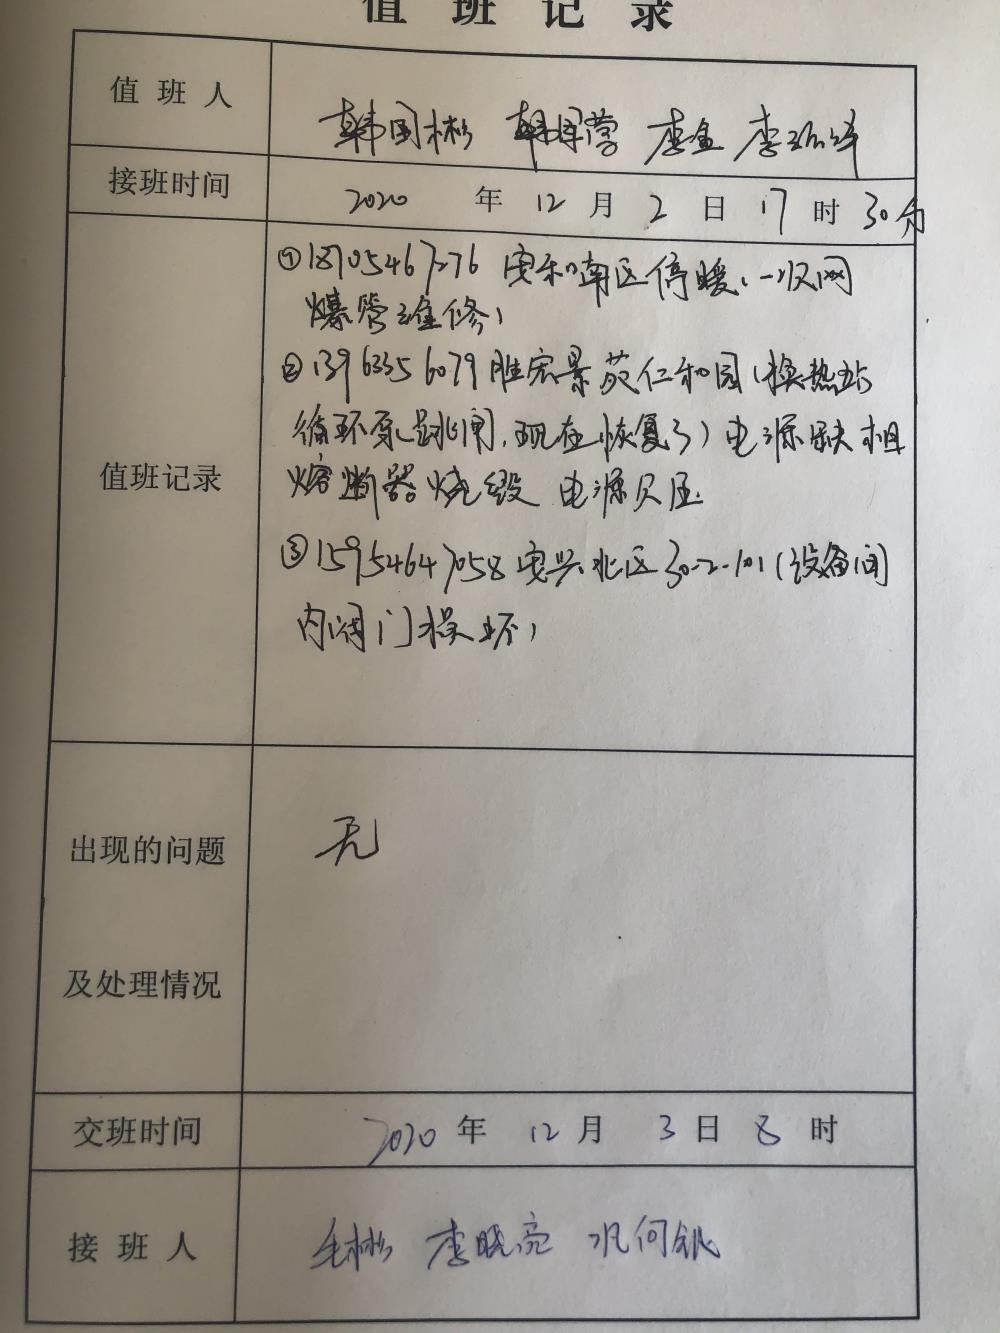 值班记录
值班人 韩国彬 韩国营 李金 李
接班时间 2020年12月2日17时30分
①18705467276 安和南区停暖(一次网
爆管维修)
②13963356079胜宏景苑仁和园(换热站
循环泵跳闸,现在恢复了)电源缺相
值班记录 熔断器烧毁 电源欠压
③15954647058安兴北区30-2-101(设备间
内阀门损坏)
出现的问题 无
及处理情况
交班时间 2020年12月3日8时
接班人 毛彬 李晓亮